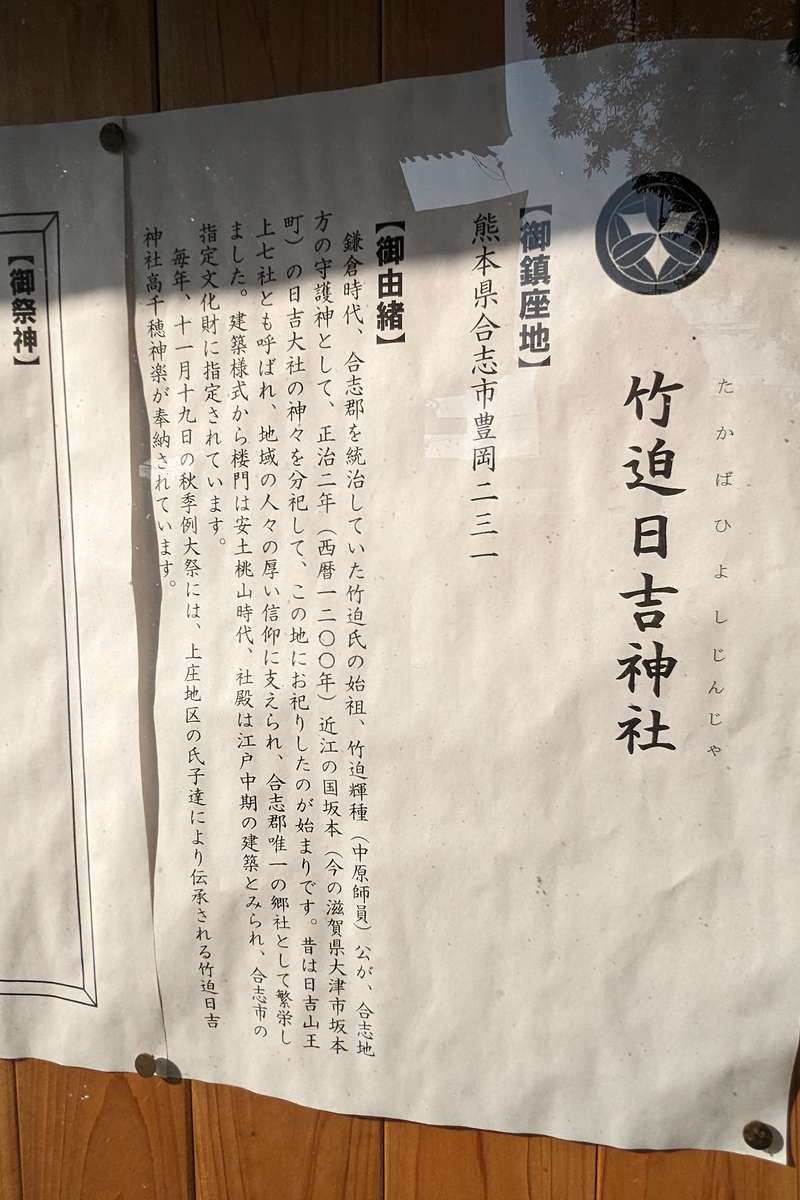 たかばひよしじんじゃ
竹迫日吉神社
【御鎮座地】
熊本県合志市豊岡二三一
【御由緒】
鎌倉時代、合志郡を統治していた竹迫氏の始祖、竹迫輝種（中原師員）公が、合志地
方の守護神として、正治二年（西暦一二〇〇年）近江の国坂本（今の滋賀県大津市坂本
町）の日吉大社の神々を分祀して、この地にお祀りしたのが始まりです。昔は日吉山王
上七社とも呼ばれ、地域の人々の厚い信仰に支えられ、合志郡唯一の郷社として繁栄し
ました。建築様式から楼門は安土桃山時代、社殿は江戸中期の建築とみられ、合志市の
指定文化財に指定されています。
毎年、十一月十九日の秋季例大祭には、上庄地区の氏子達により伝承される竹迫日吉
神社高千穂神楽が奉納されています。
【御祭神】